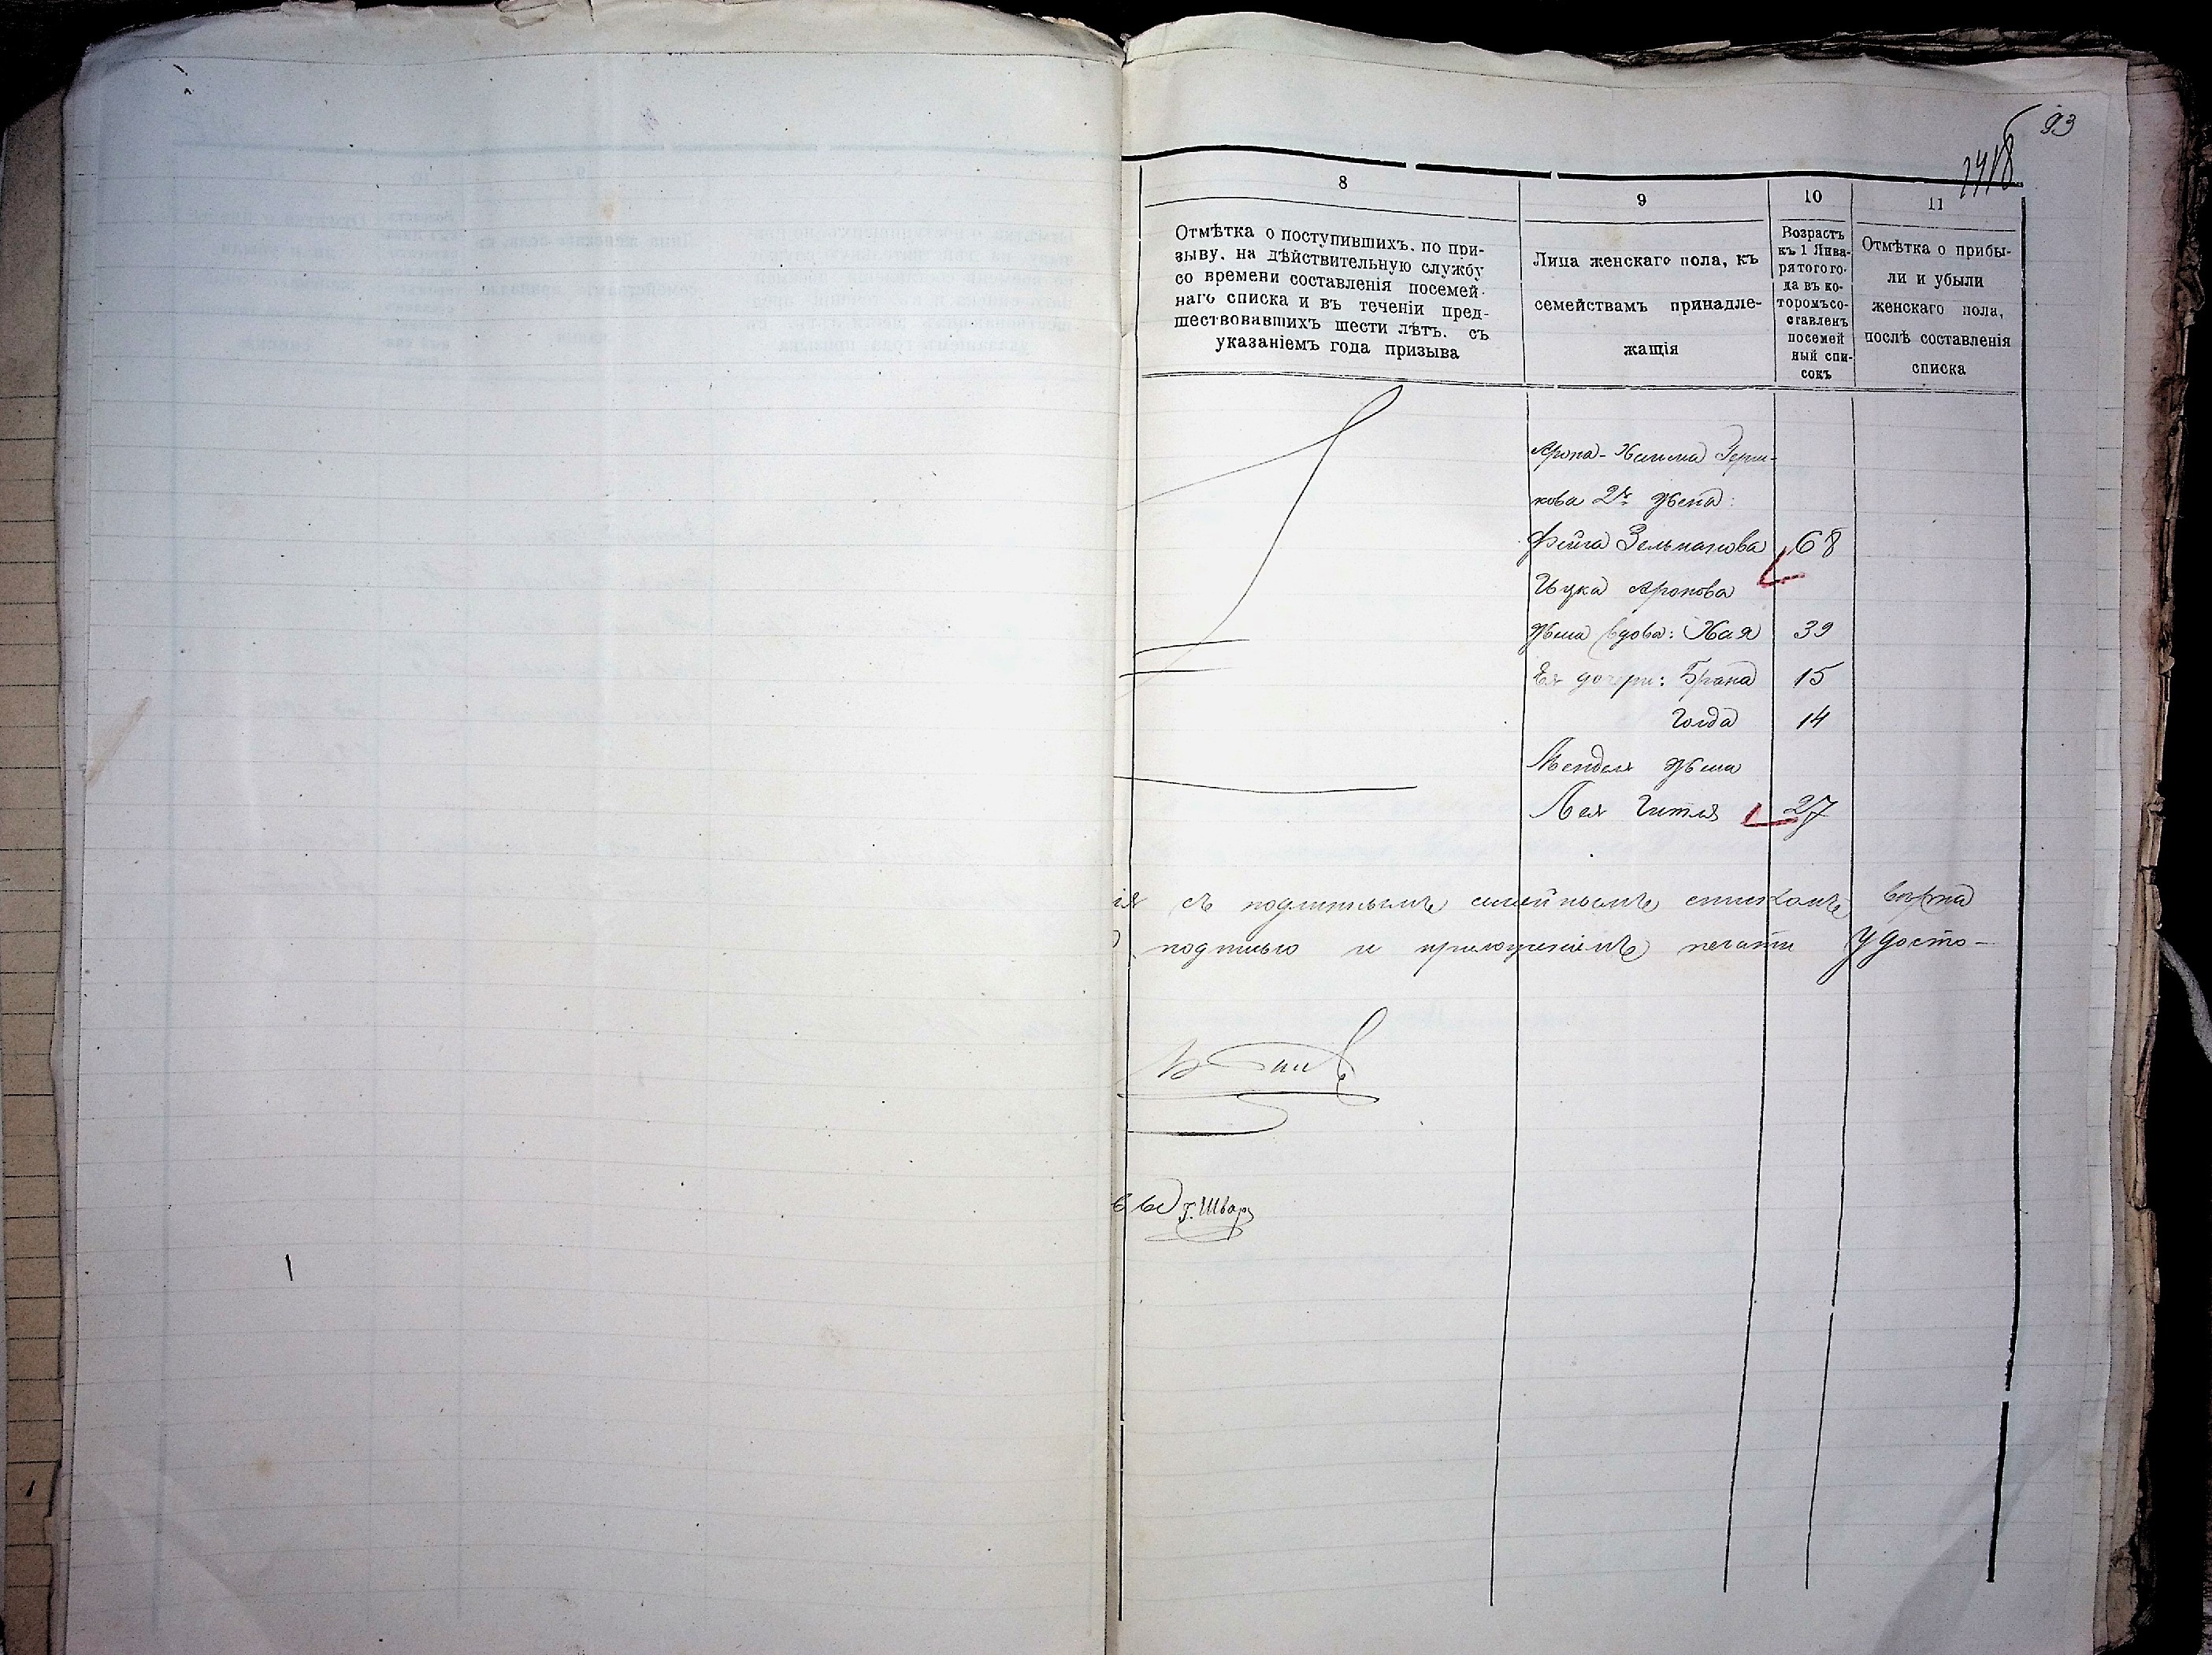 93
2418
8
Отмѣтка о поступившихъ, по при-
зыву, на дѣйствительную службу
со времени составленія посемей-
наго списка и въ теченіи пред-
шествовавшихъ шести лѣтъ, съ
указаніемъ года призыва
9
Лица женскаго пола, къ
семействамъ принадле-
жащія
10
Возрастъ
къ 1 Янва-
ря того го-
да въ ко-
торомъ со-
ставленъ
посемей
ный спи-
сокъ
11
Отмѣтка о прибы-
ли и убыли
женскаго пола,
послѣ составленія
списка
Арона-Хаима Герш-
кова 2я жена:
Фейга Зельманова 68
Ицка Аронова
жена вдова: Хая 39
Ея дочери: Брана 15
Голда 14
Менделя жена
Лея Гитля 27
ія съ подлиннымъ семейнымъ спискомъ вѣрна
подписью и приложеніемъ печати удосто-
Г. Шварц